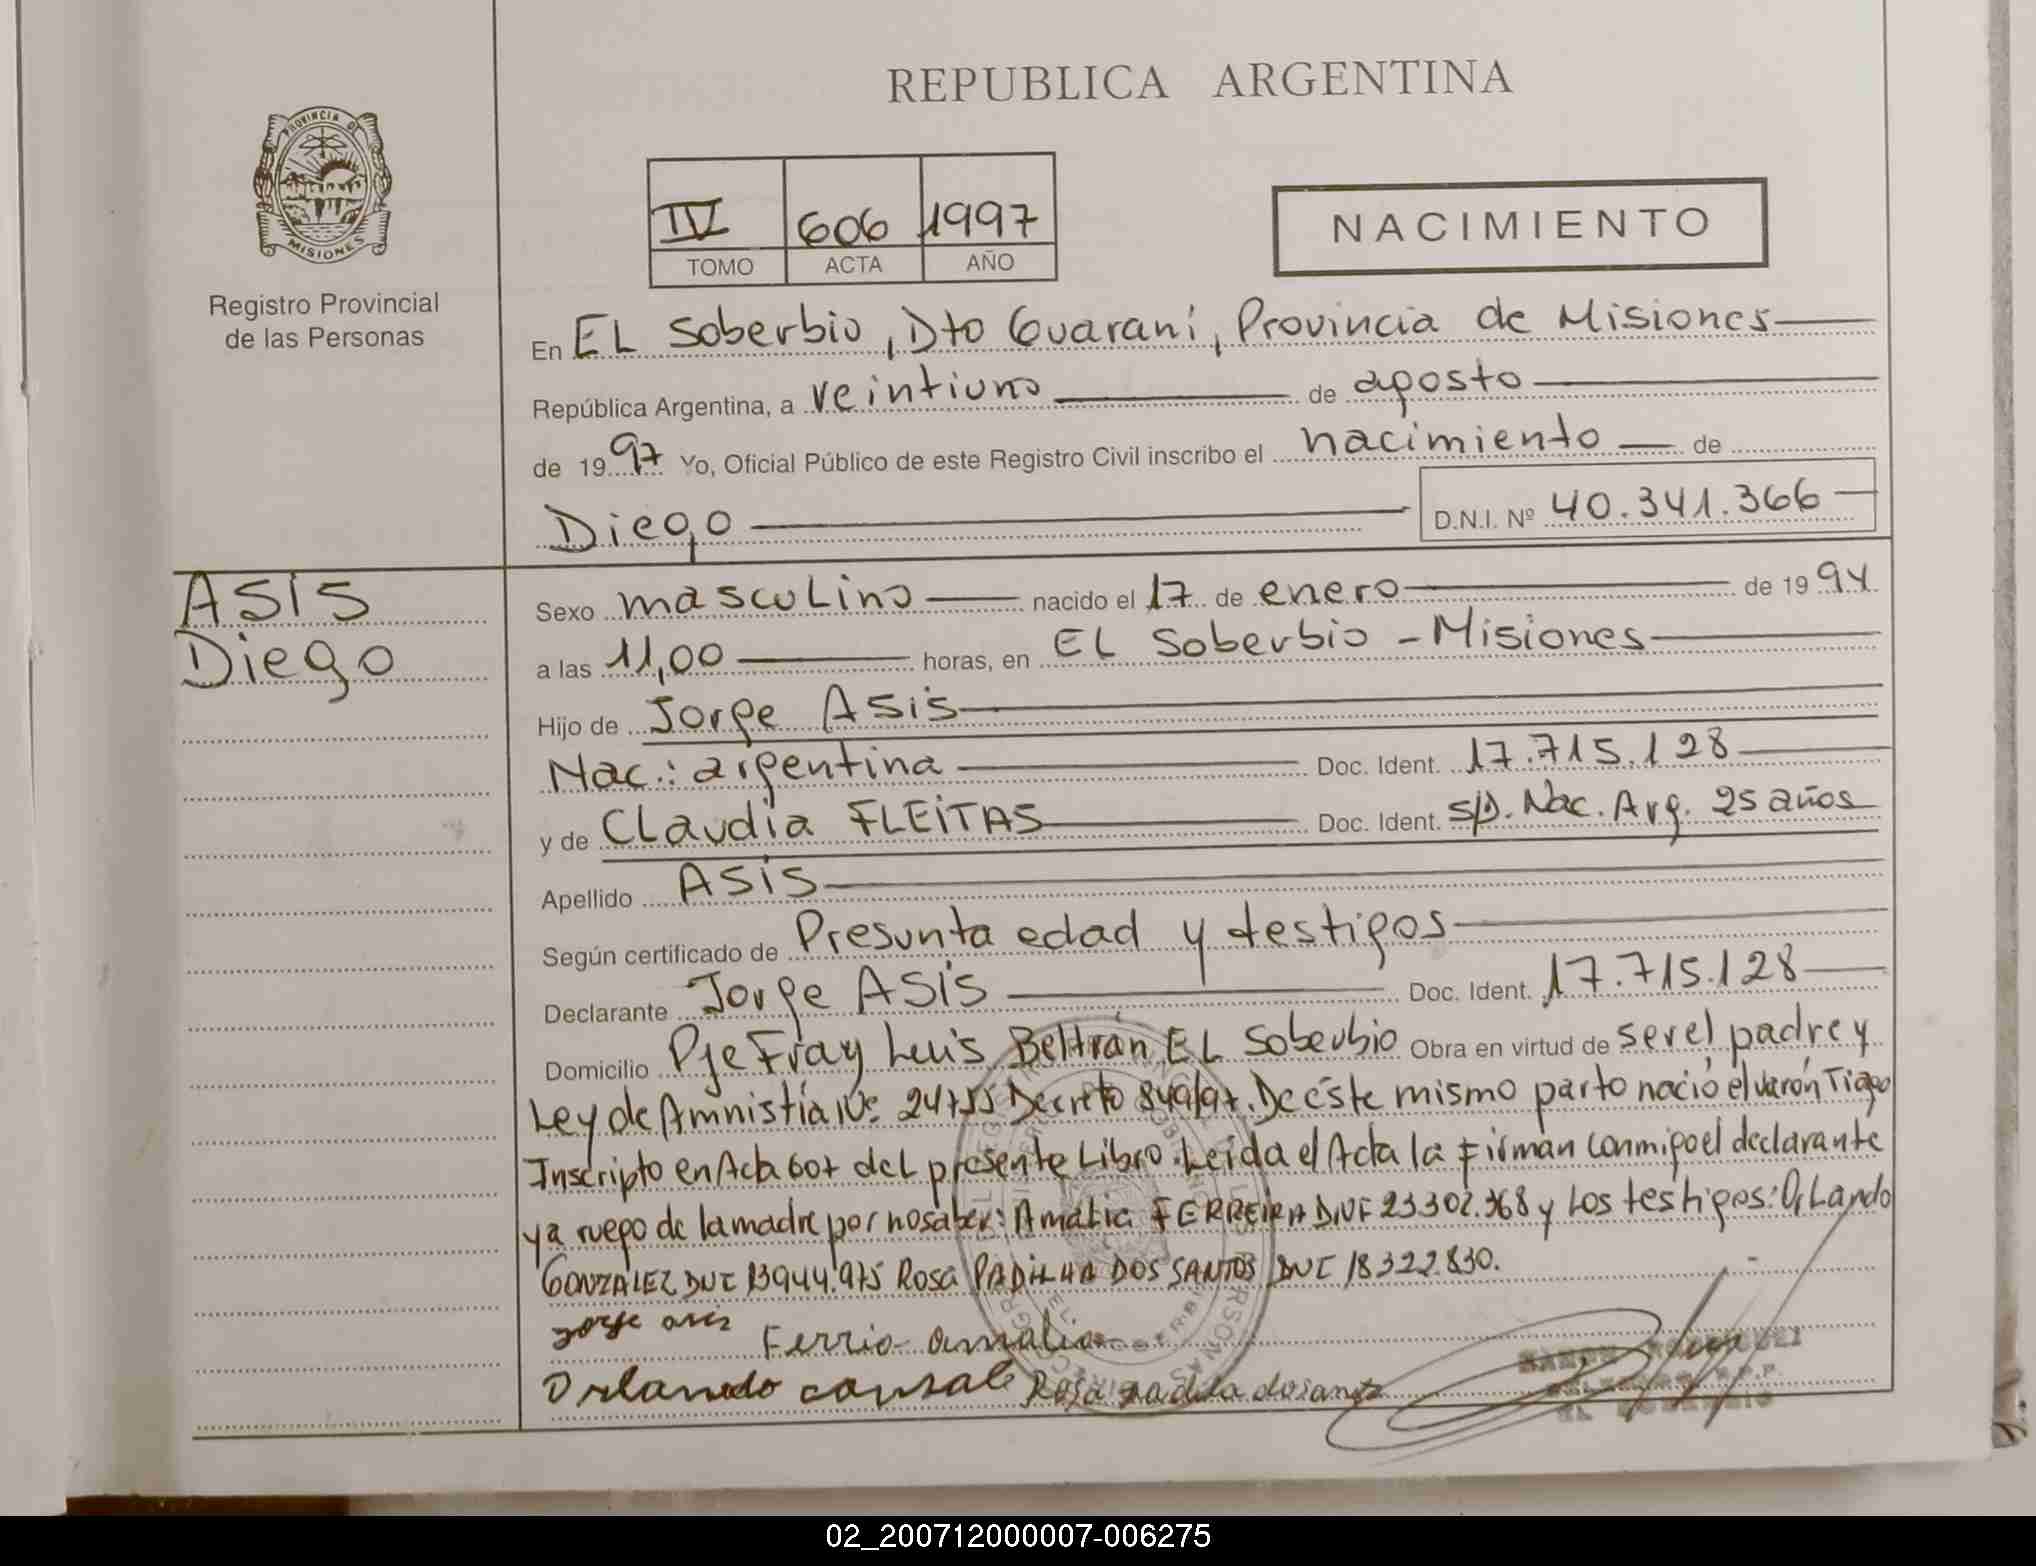 REPUBLICA ARGENTINA
PROVINCIA DE
MISIONES
Registro Provincial
de las Personas
IV 606 1997
TOMO ACTA AÑO
NACIMIENTO
En EL Soberbio, Dto Guaraní, Provincia de Misiones
República Argentina, a veintiuno de agosto
de 1997 Yo, Oficial Público de este Registro Civil inscribo el nacimiento de
Diego D.N.I. Nº 40.341.366
ASIS
Diego
Sexo masculino nacido el 17 de enero de 1994
a las 11,00 horas, en EL Soberbio - Misiones
Hijo de Jorge ASIS
Nac.: argentina Doc. Ident. 17.715.128
y de CLaudia FLEITAS Doc. Ident. S/D. Nac. Arg. 25 años
Apellido ASIS
Según certificado de Presunta edad y testigos
Declarante Jorge ASIS Doc. Ident. 17.715.128
Domicilio Pje Fray Luis Beltrán EL Soberbio Obra en virtud de ser el padre y
Ley de Amnistía Nº 24755 Decreto 849/97. De este mismo parto nació el varón Tiago
Inscripto en Acta 607 del presente Libro. Leída el Acta la Firman conmigo el declarante
y a ruego de la madre por no saber: Amalia FERREIRA DNI 23302.368 y Los testigos: Orlando
GONZALEZ DNI 13944.975 Rosa PADILHA DOS SANTOS DNI 18322.830.
Jorge asis Ferrio amalia
Orlando consale Rosa padila dosant
02_200712000007-006275